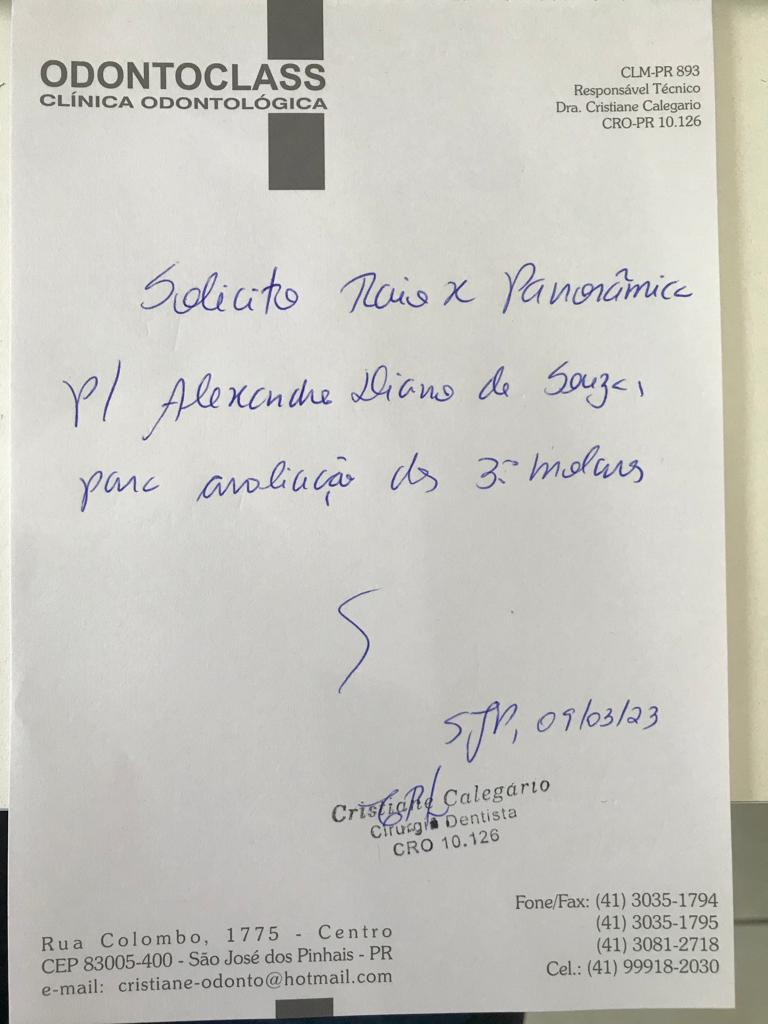 ODONTOCLASS
CLÍNICA ODONTOLÓGICA
CLM-PR 893
Responsável Técnico
Dra. Cristiane Calegario
CRO-PR 10.126
Solicito Raio X Panorâmica
p/ Alexandre Diano de Souza,
para avaliação dos 3ºs molares
SJP, 09/03/23
Cristiane Calegário
Cirurgiã Dentista
CRO 10.126
Rua Colombo, 1775 - Centro
CEP 83005-400 - São José dos Pinhais - PR
e-mail: cristiane-odonto@hotmail.com
Fone/Fax: (41) 3035-1794
(41) 3035-1795
(41) 3081-2718
Cel.: (41) 99918-2030